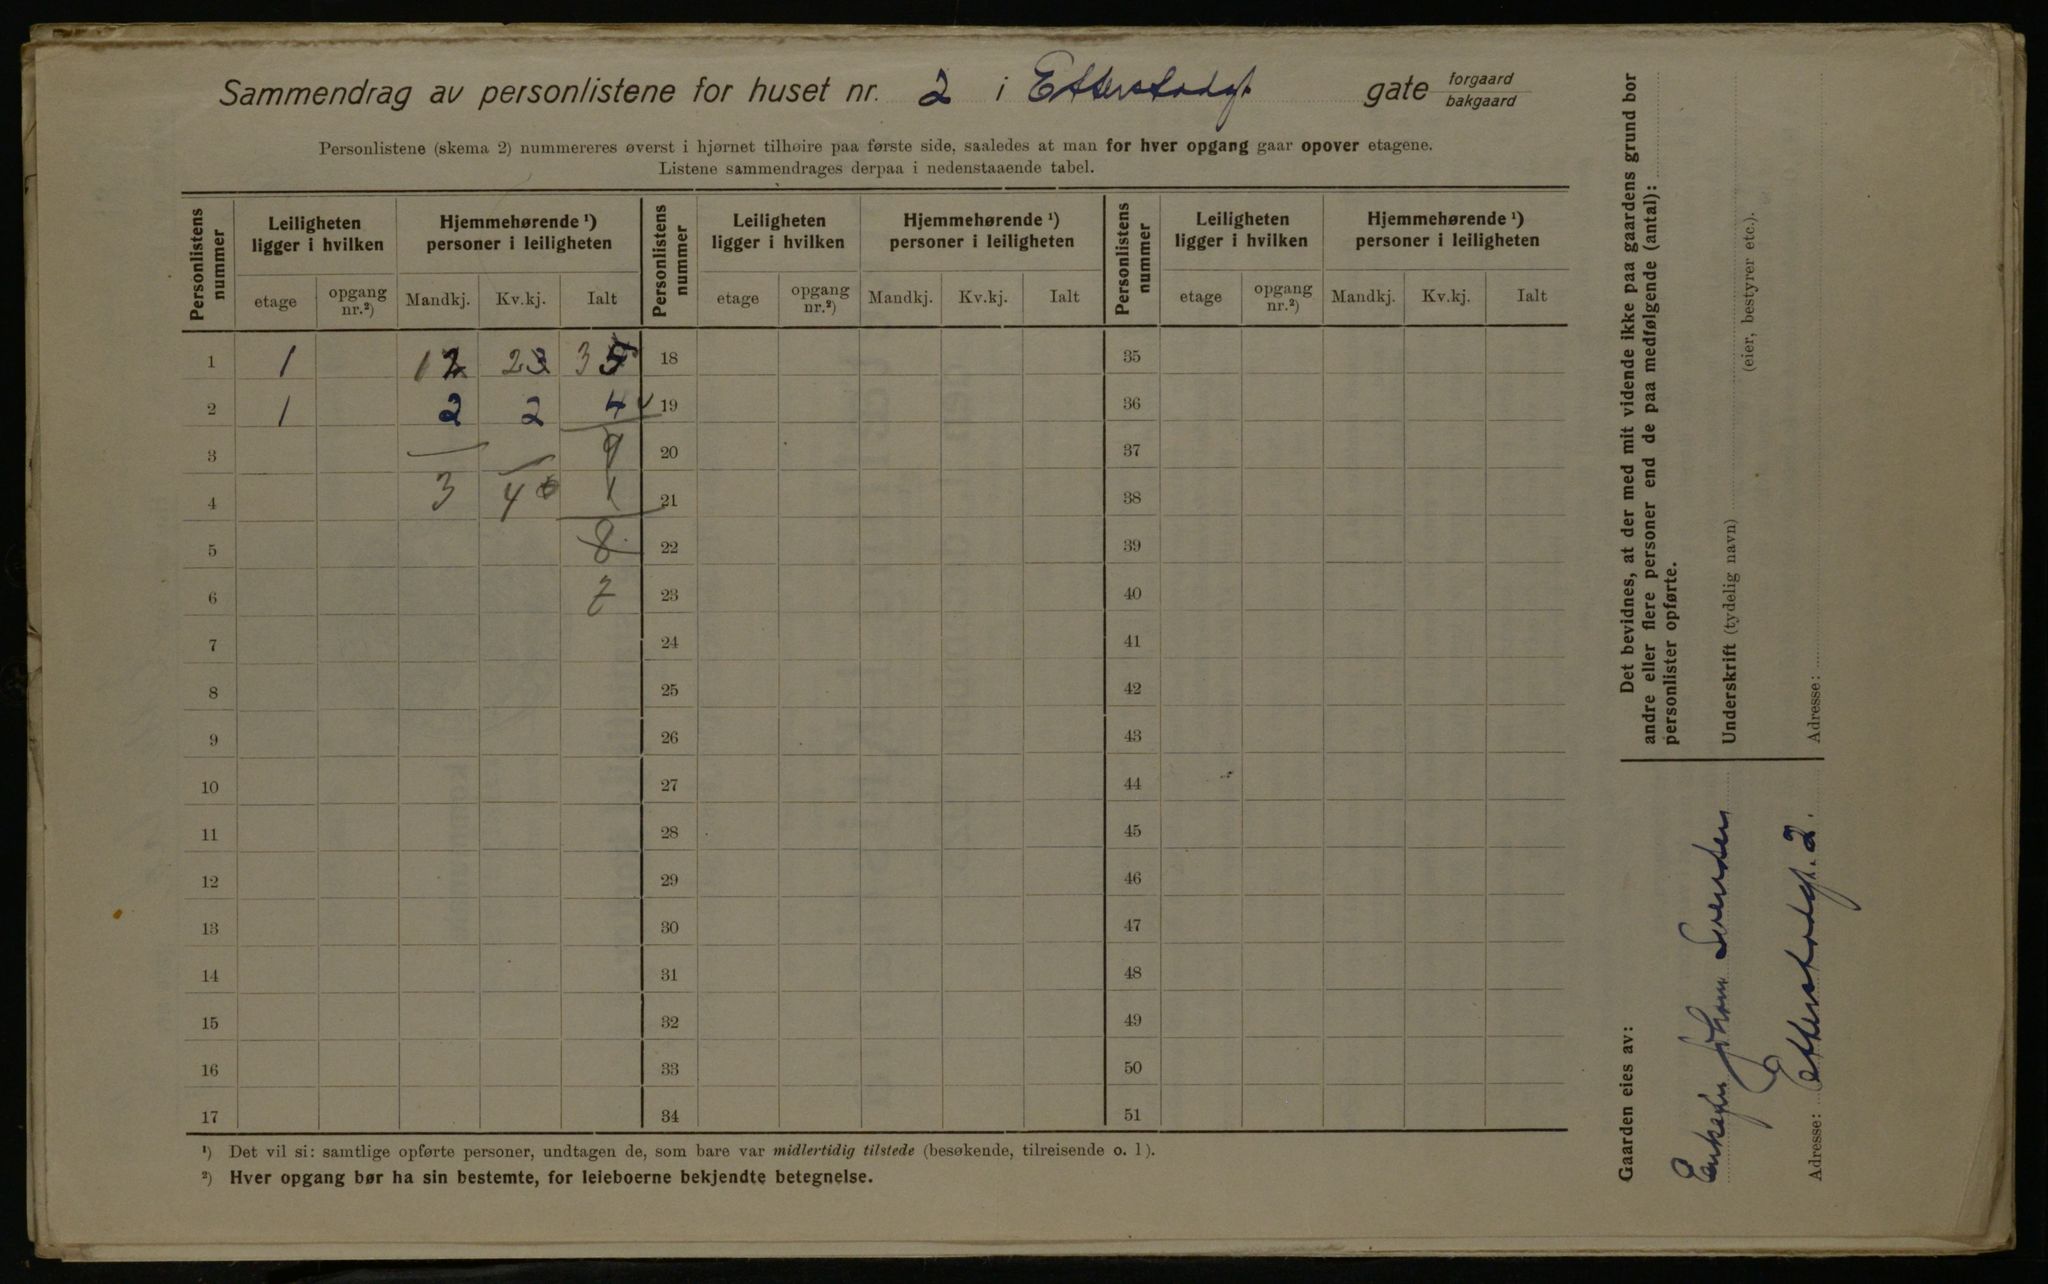 Sammendrag av personlistene for huset nr. 2 i Etterstadgt. gate forgaard bakgaard
Personlistene (skema 2) nummereres øverst i hjørnet tilhøire paa første side, saaledes at man for hver opgang gaar opover etagene.
Listene sammendrages derpaa i nedenstaaende tabel.
Personlistens nummer Leiligheten ligger i hvilken Hjemmehørende ¹) personer i leiligheten Personlistens nummer Leiligheten ligger i hvilken Hjemmehørende ¹) personer i leiligheten Personlistens nummer Leiligheten ligger i hvilken Hjemmehørende ¹) personer i leiligheten
etage opgang nr.²) Mandkj. Kv.kj. Ialt etage opgang nr.²) Mandkj. Kv.kj. Ialt etage opgang nr.²) Mandkj. Kv.kj. Ialt
1 1 1 2 2 3 3 5 18 35
2 1 2 2 4 19 36
3 9 20 37
4 3 4 1 21 38
5 8 22 39
6 7 23 40
7 24 41
8 25 42
9 26 43
10 27 44
11 28 45
12 29 46
13 30 47
14 31 48
15 32 49
16 33 50
17 34 51
¹) Det vil si: samtlige opførte personer, undtagen de, som bare var midlertidig tilstede (besøkende, tilreisende o. l).
²) Hver opgang bør ha sin bestemte, for leieboerne bekjendte betegnelse.
Det bevidnes, at der med mit vidende ikke paa gaardens grund bor
andre eller flere personer end de paa medfølgende (antal):
personlister opførte.
Underskrift (tydelig navn)
(eier, bestyrer etc.).
Adresse:
Gaarden eies av:
Johan Svendsen
Adresse: Etterstadgt. 2.